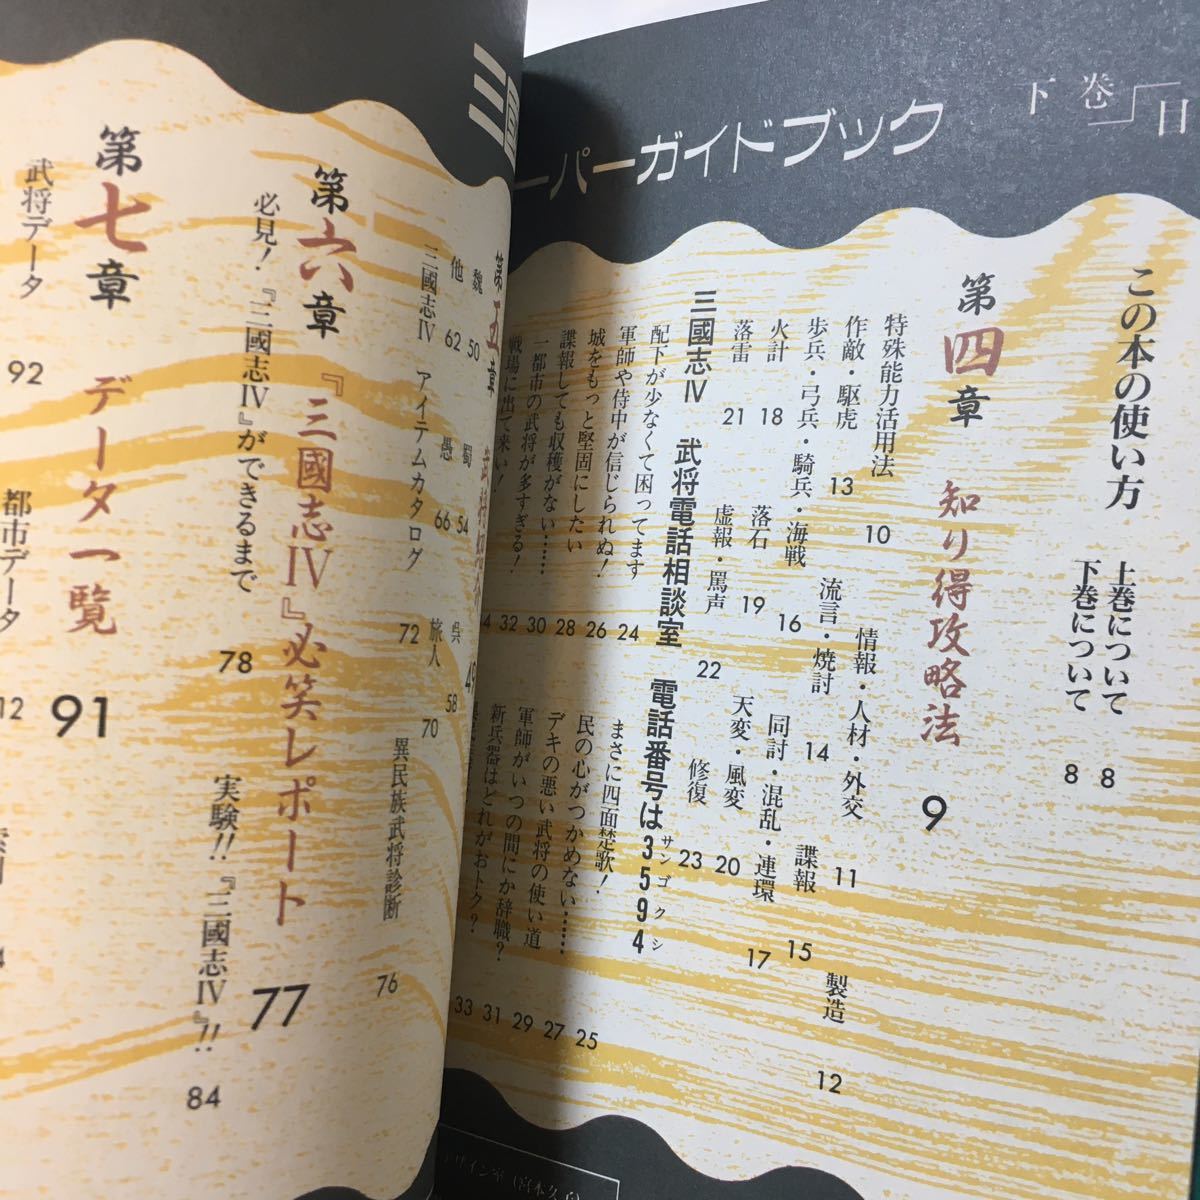 ーパーガイドブック
下巻
この本の使い方
上巻について 8
下巻について 8
第四章 知り得攻略法 9
特殊能力活用法 10
情報・人材・外交 11
製造 12
作敵・駆虎 13
流言・焼討 14
諜報 15
歩兵・弓兵・騎兵・海戦 16
同討・混乱・連環 17
火計 18
落石 19
天変・風変 20
落雷 21
虚報・罵声 22
修復 23
三國志Ⅳ 武将電話相談室 電話番号は3594
サンゴクシ
配下が少なくて困ってます 24
まさに四面楚歌! 25
軍師や侍中が信じられぬ! 26
民の心がつかめない…… 27
城をもっと堅固にしたい 28
デキの悪い武将の使い道 29
諜報しても収穫がない…… 30
軍師がいつの間にか辞職? 31
一都市の武将が多すぎる! 32
新兵器はどれがおトク? 33
戦場に出て来い!
第五章
49
魏 50
蜀 54
呉 58
他 62
愚 66
旅人 70
三國志Ⅳ アイテムカタログ 72
異民族武将診断 76
第六章 『三國志Ⅳ』必笑レポート 77
必見!『三國志Ⅳ』ができるまで 78
実験!!『三國志Ⅳ』!! 84
第七章 データ一覧 91
武将データ 92
都市データ